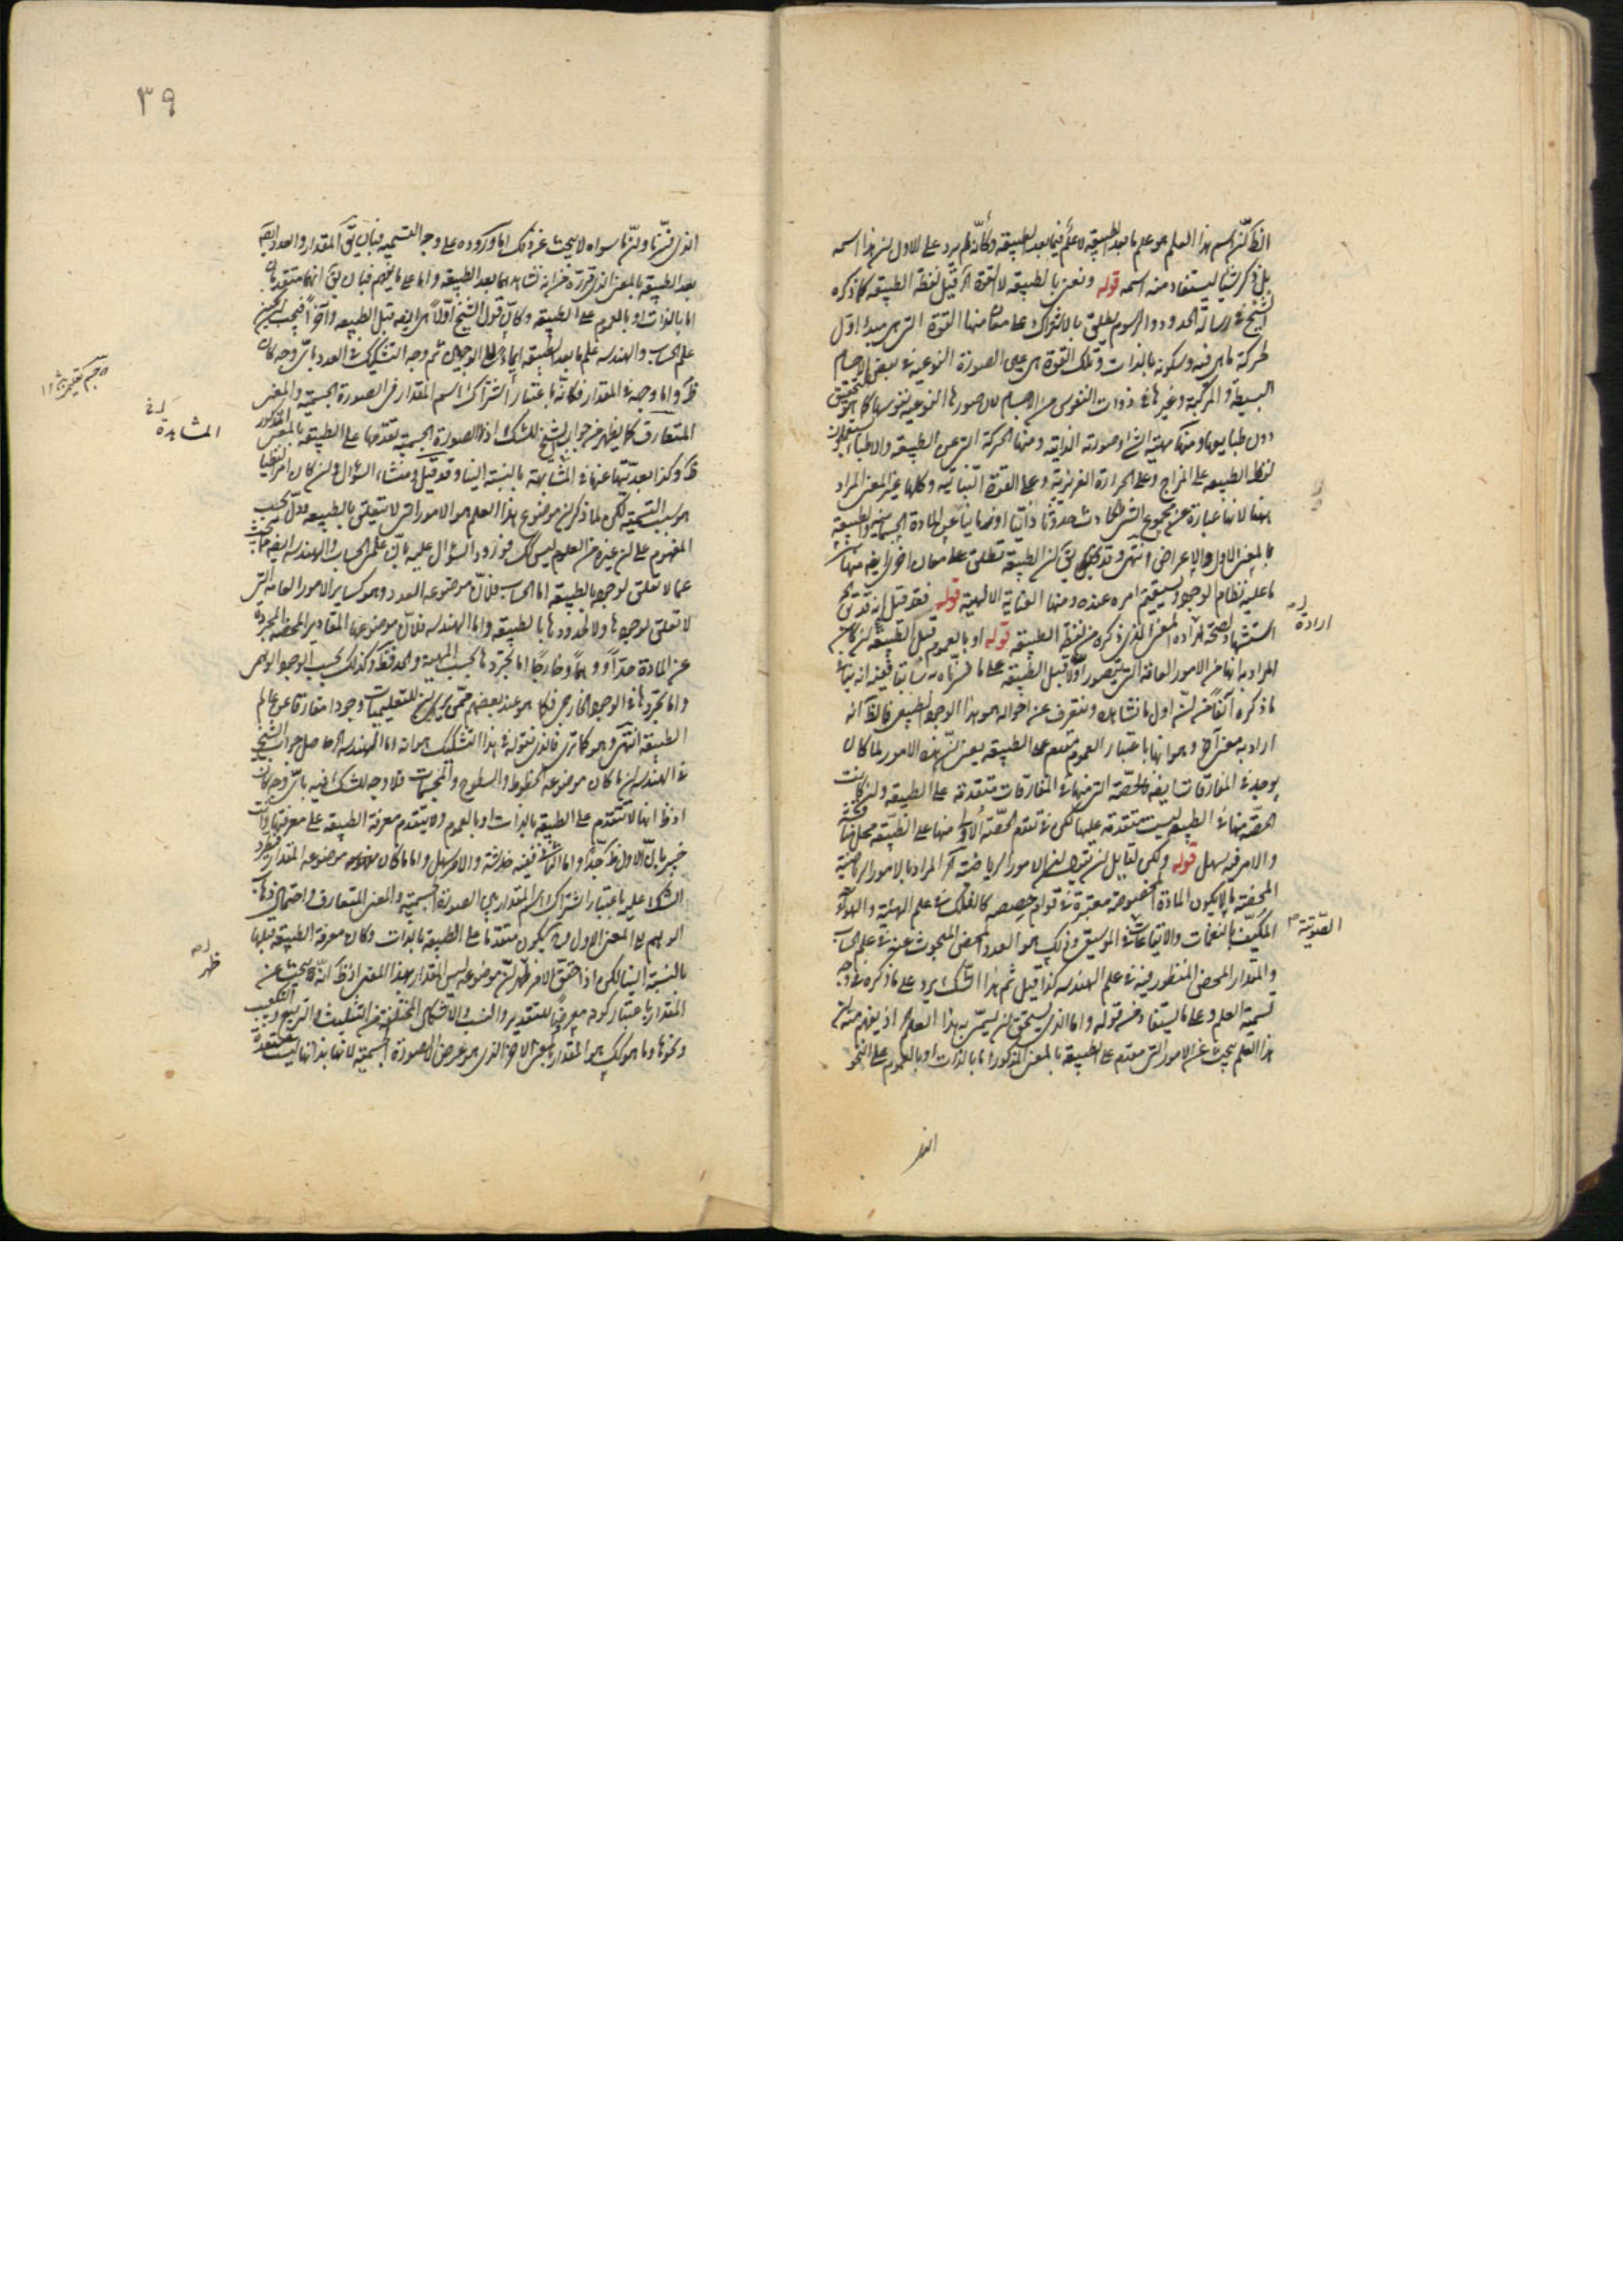 الظ كذا اسم هذا العلم هو علم ما بعد الطبيعة لا علم فيما بعد الطبيعة وكأنه لم يرد على الاول ان هذا اسمه
بل ذكر شيئا يستفاد منه اسمه قوله ونعنى بالطبيعة لا القوة آه قيل لفظة الطبيعة كما ذكره
الشيخ فى رسالة الحدود والرسوم يطلق بالاشتراك على معان منها القوة التى هى مبدأ اول
لحركة ما هى فيه وسكونه بالذات وتلك القوة هى عين الصورة النوعية فى بعض الاجسام
البسيطة والمركبة وغيرها فى ذوات النفوس من الاجسام لان صورها النوعية نفوسها كما هو التحقيق
دون طبايعها ومنها مهية الشئ او صورته الذاتية ومنها الحركة التى عن الطبيعة والاطباء يستعملون
لفظ الطبيعة على المزاج وعلى الحرارة الغريزية وعلى القوة النباتية وكلها غير المعنى المراد
ههنا لانها عبارة عن مجموع الشئ الحادث عن المادة الجسمانية والطبيعة
بالمعنى الاول والاعراض انتهى وقد يق ان الطبيعة تطلق على معان اخرى ايضا منها
ما عليه نظام الوجود ويستقيم امره عنده ومنها العناية الالهية قوله فقد قيل انه قد يق
استشهاد لصحة ارادة المعنى الذى ذكره من لفظة الطبيعة قوله او بالعموم قبل الطبيعة ان كان
المراد بها من الامور العامة التى يتصور اولا قبل الطبيعة على ما فسرناه سابقا ففيه انه ينافى
ما ذكره آنفا من ان اول ما نشاهد ونتعرف عن احواله هو هذا الوجود الطبيعى فالظ انه
اراد به معنى آخر وهو انها باعتبار العموم متقدم على الطبيعة يعنى ان هذه الامور لما كان
يوجد فى المفارقات ايضا فالحصة التى منها فى المفارقات متقدمة على الطبيعة وان كانت
الحصة منها فى الطبيعة ليست متقدمة عليها لكن فى تقدم الحصة الاولى منها على الطبيعة محل مناقشة
والامر فيه سهل قوله ولكن لقايل ان يقول ان الامور الرياضية آه المراد بالامور الرياضية
المحضة ما لا يكون المادة المخصوصة معتبرة فى قوام حصصه كالفلك فى علم الهيئة والهواء
المكيف بالنغمات والايقاعات فى الموسيقى وذلك هو العدد المحض المبحوث عنه فى علم الحساب
والمقدار المحض المنظور فيه فى علم الهندسة كذا قيل ثم هذا الشك يرد على ما ذكره فى وجه
تسمية العلم وعلى ما يستفاد من قوله واما الذى يستحق ان يسمى به هذا العلم اذ يفهم منه ان
هذا العلم يبحث عن الامور التى متقدم على الطبيعة بالمعنى المذكور اما بالذات او بالعموم على النحو
الذى
ارادة
الصوتية
٣٩
الذى فسرنا وان ما سواه لا يبحث عن ذلك اما وروده على وجه التسمية فبان يق المقدار والعدد ايضا
بعد الطبيعة بالمعنى الذى قرره من انه نشاهدهما بعد الطبيعة واما على ما يفهم فبان يق انهما متقدمان
اما بالذات او بالعموم على الطبيعة وكان قول الشيخ اولا هى ايضا قبل الطبيعة وآخرا فيجب ان يكون
علم الحساب والهندسة علم ما بعد الطبيعة ايماء الى الوجهين ثم وجه التشكيك فى العدد باى وجه كان
ظ واما وجهه فى المقدار فكانه باعتبار اشتراك اسم المقدار فى الصورة الجسمية والمعنى
المتعارف كما يظهر من جواب الشيخ للشك اذ الصورة الجسمية تقدمها على الطبيعة بالمعنى المذكور
ظ وكذا بعديتها عنها فى المشابهة بالنسبة الينا وقد قيل ومنشاء السؤال وان كان امرا لفظيا
هو سبب التسمية لكن لما ذكر ان موضوع هذا العلم هو الامور التى لا يتعلق بالطبيعة ودل بحسب
المفهوم على ان غيره من العلوم ليس كك فزود السؤال عليه بان علمى الحساب والهندسة ايضا يبحث
عما لا تعلق لوجوده بالطبيعة اما الحساب فلان موضوعه العدد وهو كساير الامور العامة التى
لا تعلق لوجودها ولا لحدودها بالطبيعة واما الهندسة فلان موضوعها المقادير المحضة المجردة
عن المادة حدا ووهما وخارجا اما تجردها بحسب المهية والحد فظ وكذلك بحسب الوجود الوهمى
واما تجردها فى الوجود الخارجى فكما هو عند بعضهم ممن يرى ان للتعليميات وجودا مفارقا عن عالم
الطبيعة انتهى وهو كما ترى فالذى نقوله فى هذا التشكيك هو انه اما الهندسة آه حاصل جواب الشيخ
فى الهندسة ان ما كان موضوعه الخطوط والسطوح والمجسمات فلا وجه للشك فيه باى وجه كان
اذ ظ انها لا تتقدم على الطبيعة بالذات او بالعموم ولا يتقدم معرفة الطبيعة على معرفتها وانت
خبير بان الاول ظ جدا واما الثانى ففيه خدشة والامر سهل واما ما كان موضوعه المقدار فيرد
الشك عليه باعتبار اشتراك اسم المقدار بين الصورة الجسمية والمعنى المتعارف واحتمال ذهاب
الوهم الى المعنى الاول فيكون متقدما على الطبيعة بالذات وكان معرفة الطبيعة قبلها
بالنسبة الينا لكن اذا حقق الامر ظهر ان موضوعه ليس المقدار بهذا المعنى اذ ظ انه لا يبحث عن
المقدار باعتبار كونه معروضا للتقدير والنسب والاشكال المختلفة من التثليث والتربيع والتكعيب
ونحوها وما هو كك هو المقدار بمعنى الآخر الذى هو عرض لا الصورة الجسمية لانها بذاتها ليست مستعدة
المشاهدة
ظهر